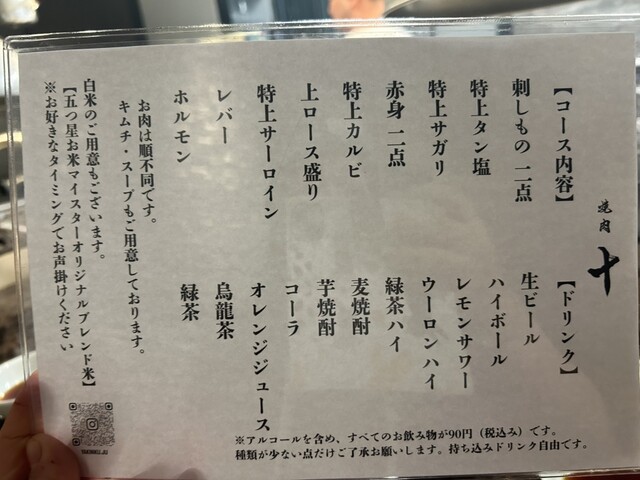 焼肉 十
【コース内容】
刺しもの 二点
特上タン塩
特上サガリ
赤身 二点
特上カルビ
上ロース盛り
特上サーロイン
レバー
ホルモン
お肉は順不同です。
キムチ・スープもご用意しております。
白米のご用意もございます。
【五つ星お米マイスターオリジナルブレンド米】
※お好きなタイミングでお声掛けください
【ドリンク】
生ビール
ハイボール
レモンサワー
ウーロンハイ
緑茶ハイ
麦焼酎
芋焼酎
コーラ
オレンジジュース
烏龍茶
緑茶
※アルコールを含め、すべてのお飲み物が90円（税込み）です。
種類が少ない点だけご了承お願いします。持ち込みドリンク自由です。